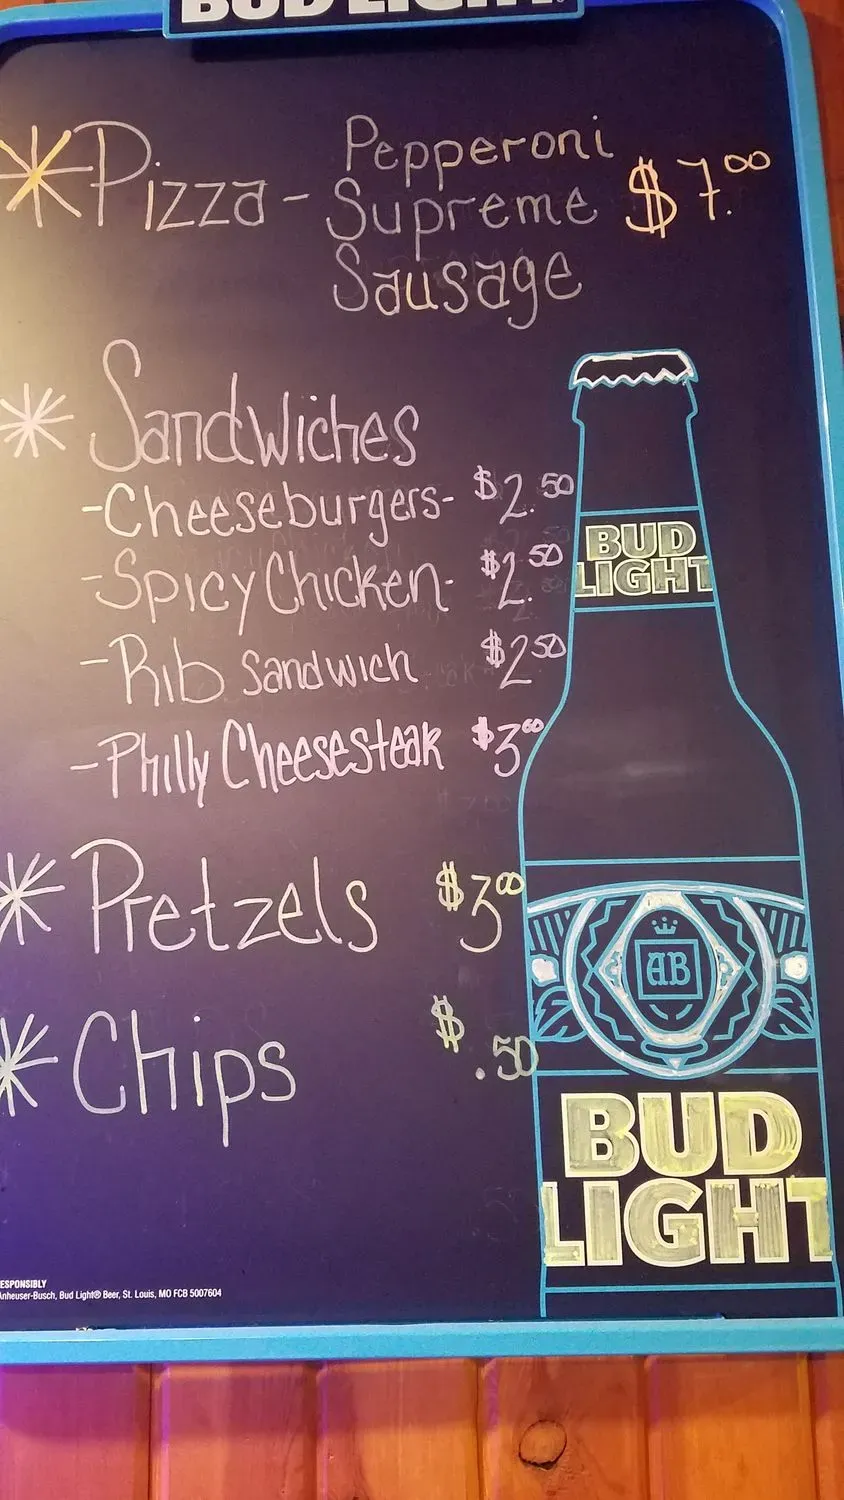 BUD LIGHT
*Pizza - Pepperoni
Supreme $7.00
Sausage
* Sandwiches
-Cheeseburgers- $2.50
-Spicy Chicken- $2.50
-Rib Sandwich $2.50
-Philly Cheesesteak $3.00
* Pretzels $3.00
* Chips $.50
BUD
LIGHT
AB
BUD
LIGHT
ESPONSIBLY
Anheuser-Busch, Bud Light® Beer, St. Louis, MO FCB 5007604